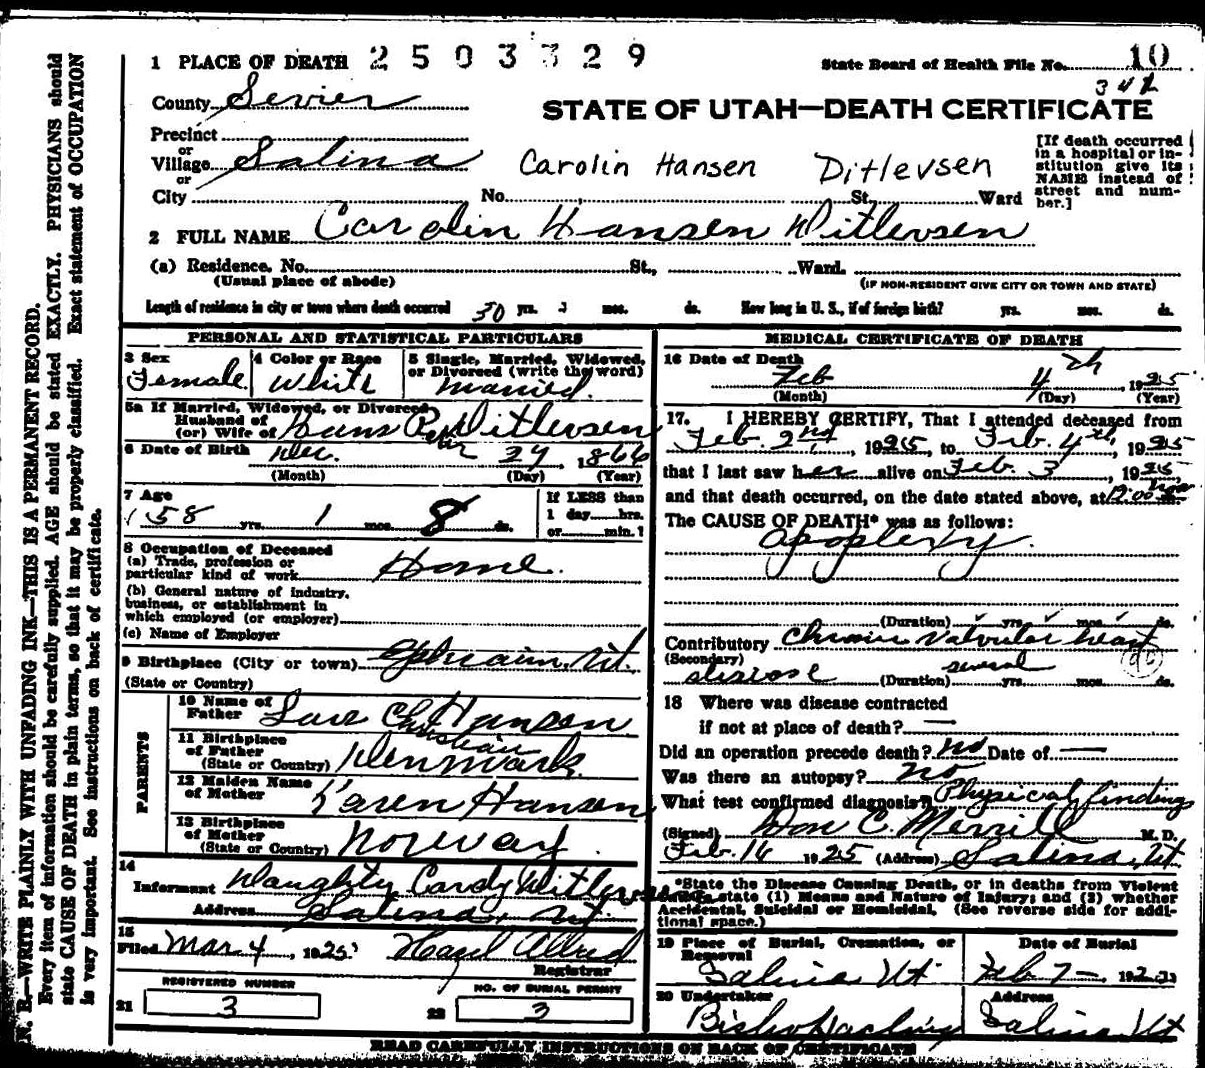 1 PLACE OF DEATH 2503329 State Board of Health File No. 10
342
County Sevier STATE OF UTAH—DEATH CERTIFICATE
Precinct
or
Village Salina Carolin Hansen Ditlevsen
or
City No. St. Ward
[If death occurred in a hospital or institution give its NAME instead of street and number.]
2 FULL NAME Carolin Hansen Ditlevsen
(a) Residence. No. St., Ward.
(Usual place of abode) (IF NON-RESIDENT GIVE CITY OR TOWN AND STATE)
Length of residence in city or town where death occurred 30 yrs. mos. ds. How long in U. S., if of foreign birth? yrs. mos. ds.
PERSONAL AND STATISTICAL PARTICULARS
3 Sex Female
4 Color or Race White
5 Single, Married, Widowed, or Divorced (write the word) Married.
5a If Married, Widowed, or Divorced
Husband of
(or) Wife of Hans Peter Ditlevsen
6 Date of Birth Dec. 27, 1866
(Month) (Day) (Year)
7 Age 58 yrs. 1 mos. 8 ds.
If LESS than
1 day......hrs.
or......min.?
8 Occupation of Deceased
(a) Trade, profession or
particular kind of work Home.
(b) General nature of industry,
business, or establishment in
which employed (or employer)
(c) Name of Employer
9 Birthplace (City or town) Ephraim, Ut.
(State or Country)
PARENTS
10 Name of
Father Laus Ch Hansen
Christian
11 Birthplace
of Father
(State or Country) Denmark
12 Maiden Name
of Mother Karen Hansen
13 Birthplace
of Mother
(State or Country) Norway.
14
Informant Daughty Cardy Ditlevsen
Address Salina, Ut.
15
Filed Mar 4, 1925. Hazel Allred
Registrar
REGISTERED NUMBER NO. OF BURIAL PERMIT
21 3 22 3
MEDICAL CERTIFICATE OF DEATH
16 Date of Death
Feb 4th, 1925
(Month) (Day) (Year)
17. I HEREBY CERTIFY, That I attended deceased from
Feb. 2nd, 1925, to Feb. 4th, 1925
that I last saw her alive on Feb. 3, 1925
and that death occurred, on the date stated above, at 12:00 m.
The CAUSE OF DEATH* was as follows:
Apoplexy.
(Duration) yrs. mos. ds.
Contributory Chronic Valvular heart
(Secondary)
disease (Duration) several yrs. mos. ds.
18 Where was disease contracted
if not at place of death? —
Did an operation precede death? No Date of —
Was there an autopsy? No
What test confirmed diagnosis? Physical findings
(Signed) Don C. Merrill M. D.
Feb. 16 1925 (Address) Salina, Ut
*State the Disease Causing Death, or in deaths from Violent
state (1) Means and Nature of Injury; and (2) whether
Accidental, Suicidal or Homicidal. (See reverse side for additional space.)
19 Place of Burial, Cremation, or
Removal
Salina Ut
Date of Burial
Feb 7—, 192
20 Undertaker
Address
Salina Ut
READ CAREFULLY INSTRUCTIONS ON BACK OF CERTIFICATE
N. B.—WRITE PLAINLY WITH UNFADING INK—THIS IS A PERMANENT RECORD.
Every item of information should be carefully supplied. AGE should be stated EXACTLY. PHYSICIANS should
state CAUSE OF DEATH in plain terms, so that it may be properly classified. Exact statement of OCCUPATION
is very important. See instructions on back of certificate.